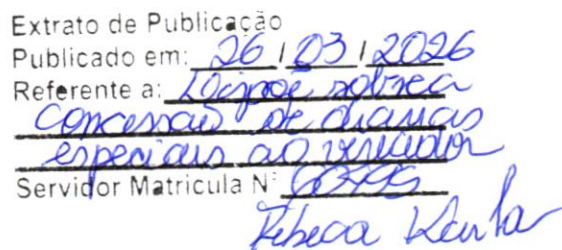 Extrato de Publicação
Publicado em: 26 / 03 / 2026
Referente a: Dispõe sobre a
concessão de diarias
especiais ao vereador
Servidor Matricula Nº
Rebeca Karla